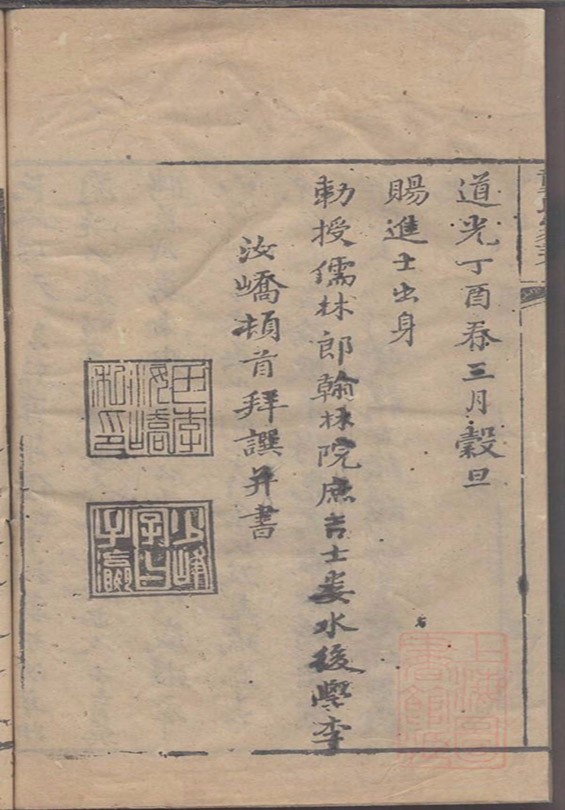 道光丁酉春三月穀旦
賜進士出身
勅授儒林郎翰林院庶吉士婁水後學李
汝嶠頓首拜譔并書